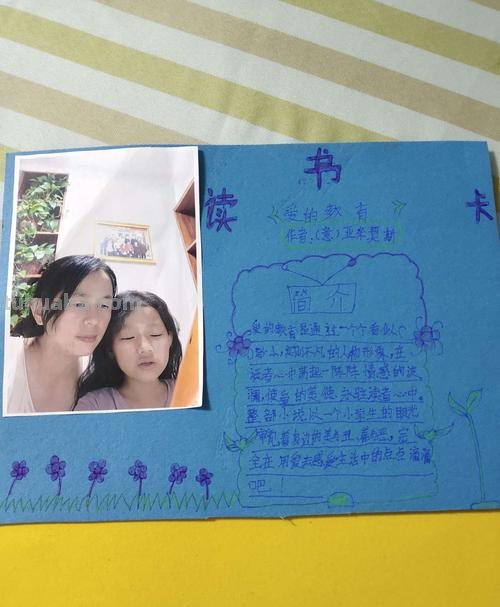 读 书 卡
爱的教育
作者:(意)亚米契斯
简介
爱的教育是通过一个个看似
渺小,却不凡的人物形象,在
读者心中荡起一阵阵情感的波
澜,使爱的美德永驻读者心中。
整部小说以一个小学生的眼光
审视着身边的美与丑、善与恶,完
全在用爱去感受生活中的点点滴滴
吧!